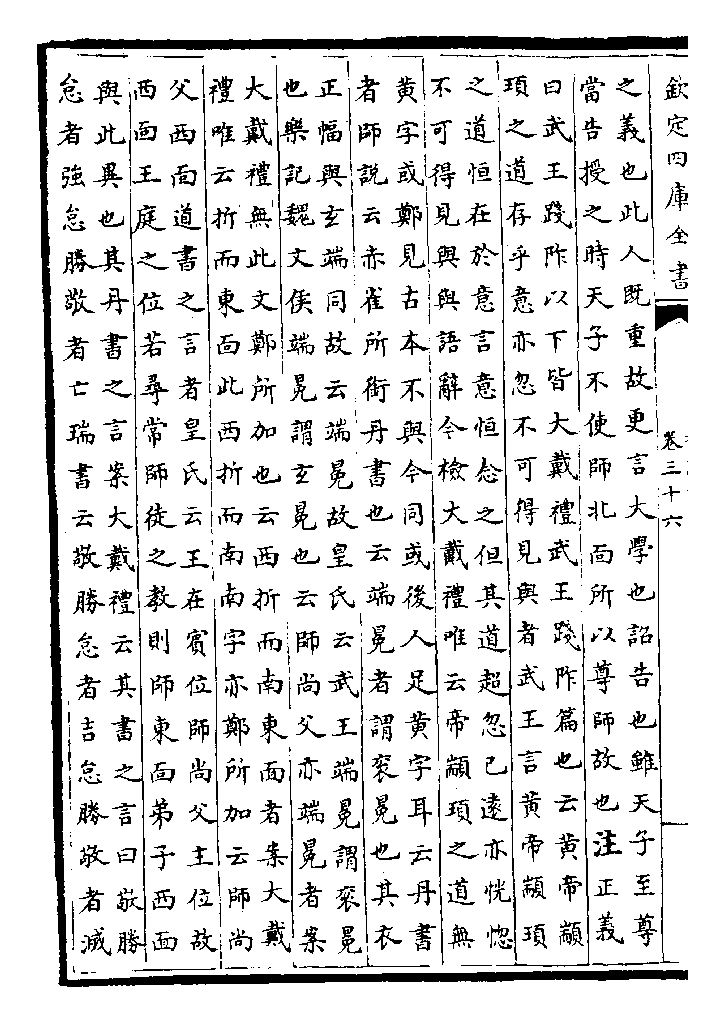 欽定四庫全書
卷三十六
之義也此人既重故更言大學也詔告也雖天子至尊
當告授之時天子不使師北面所以尊師故也注正義
曰武王踐阼以下皆大戴禮武王踐阼篇也云黄帝顓
頊之道存乎意亦忽不可得見與者武王言黄帝顓頊
之道恒在於意言意恒念之但其道超忽已遠亦恍惚
不可得見與與語辭今檢大戴禮唯云帝顓頊之道無
黄字或鄭見古本不與今同或後人足黄字耳云丹書
者師說云赤雀所銜丹書也云端冕者謂衮冕也其衣
正幅與玄端同故云端冕故皇氏云武王端冕謂衮冕
也樂記魏文侯端冕謂玄冕也云師尚父亦端冕者案
大戴禮無此文鄭所加也云西折而南東面者案大戴
禮唯云折而東面此西折而南南字亦鄭所加云師尚
父西面道書之言者皇氏云王在賓位師尚父主位故
西面王庭之位若尋常師徒之教則師東面弟子西面
與此異也其丹書之言案大戴禮云其書之言曰敬勝
怠者強怠勝敬者亡瑞書云敬勝怠者吉怠勝敬者滅